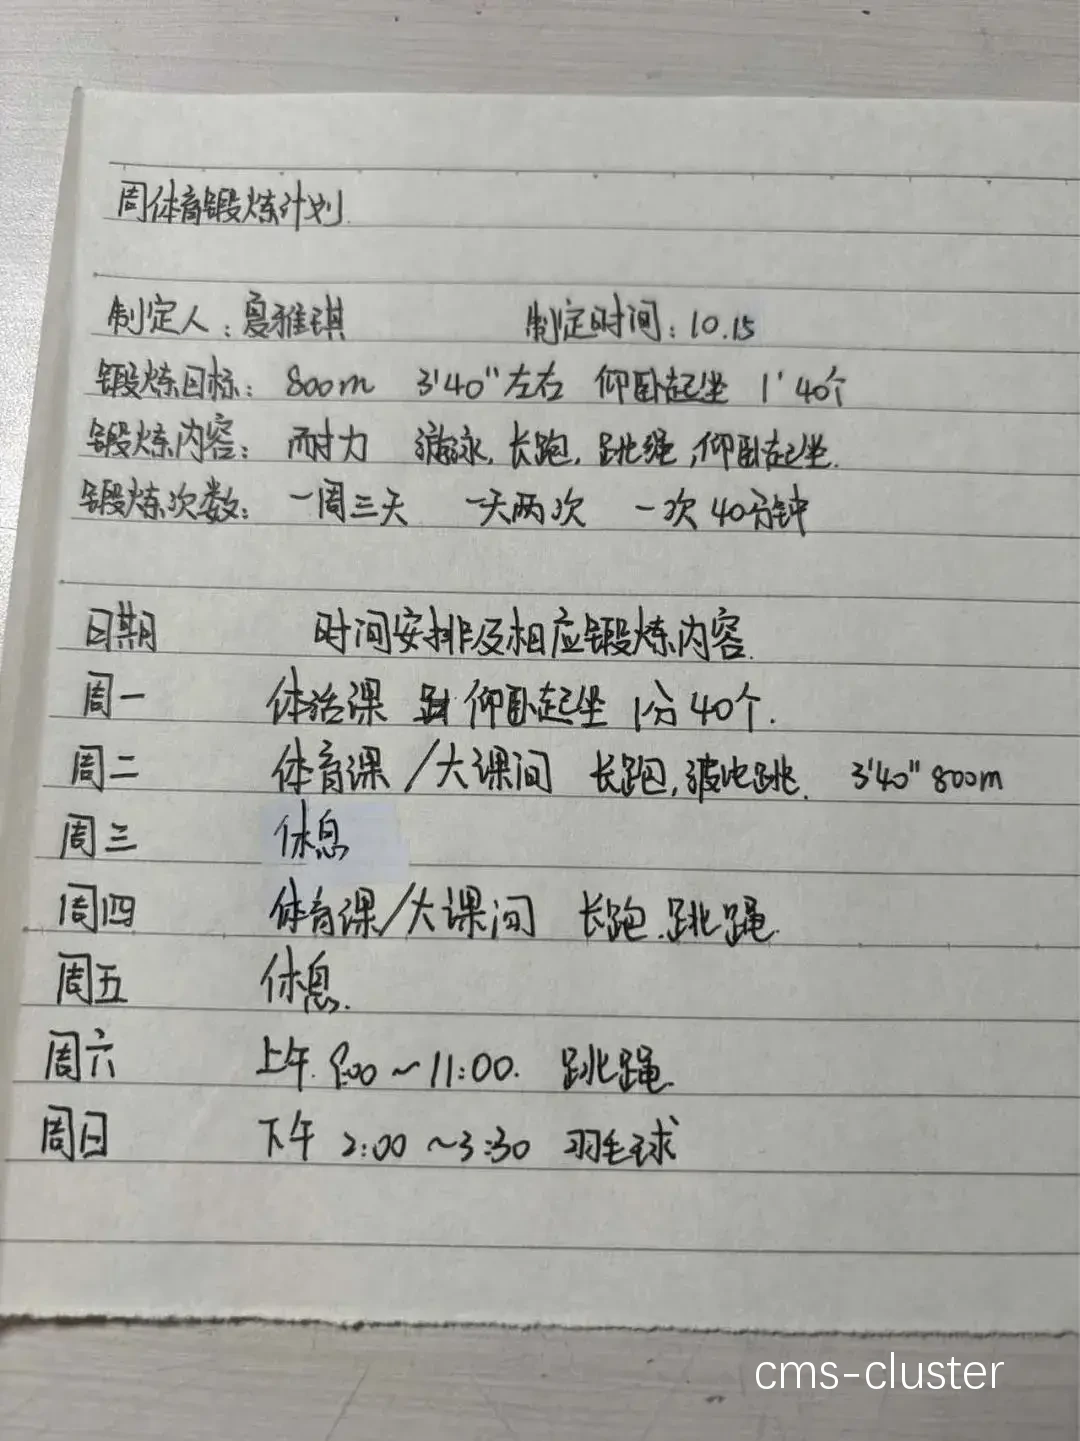 周体育锻炼计划.
制定人：夏雅琪 制定时间：10.15
锻炼目标：800m 3'40"左右 仰卧起坐 1' 40个
锻炼内容：耐力 游泳,长跑,跳绳,仰卧起坐.
锻炼次数：一周三天 一天两次 一次40分钟
日期 时间安排及相应锻炼内容.
周一 体活课 仰卧起坐 1分40个.
周二 体育课/大课间 长跑,波比跳. 3'40" 800m
周三 休息
周四 体育课/大课间 长跑.跳绳.
周五 休息.
周六 上午. ~11:00. 跳绳.
周日 下午 2:00~3:30 羽毛球
cms-cluster